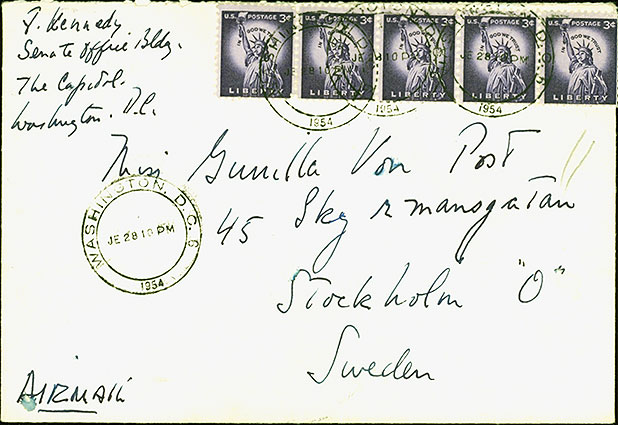 J. Kennedy
Senate Office Bldg.
The Capitol.
Washington. D.C.
U.S. POSTAGE 3¢
IN GOD WE TRUST
LIBERTY
U.S. POSTAGE 3¢
IN GOD WE TRUST
LIBERTY
U.S. POSTAGE 3¢
IN GOD WE TRUST
LIBERTY
U.S. POSTAGE 3¢
IN GOD WE TRUST
LIBERTY
U.S. POSTAGE 3¢
IN GOD WE TRUST
LIBERTY
1954
1954
1954
Miss Gunilla Von Post
45 Skyrmansgatan
Stockholm "O"
Sweden
WASHINGTON, D.C. 6
JE 28 10 PM
1954
AIRMAIL